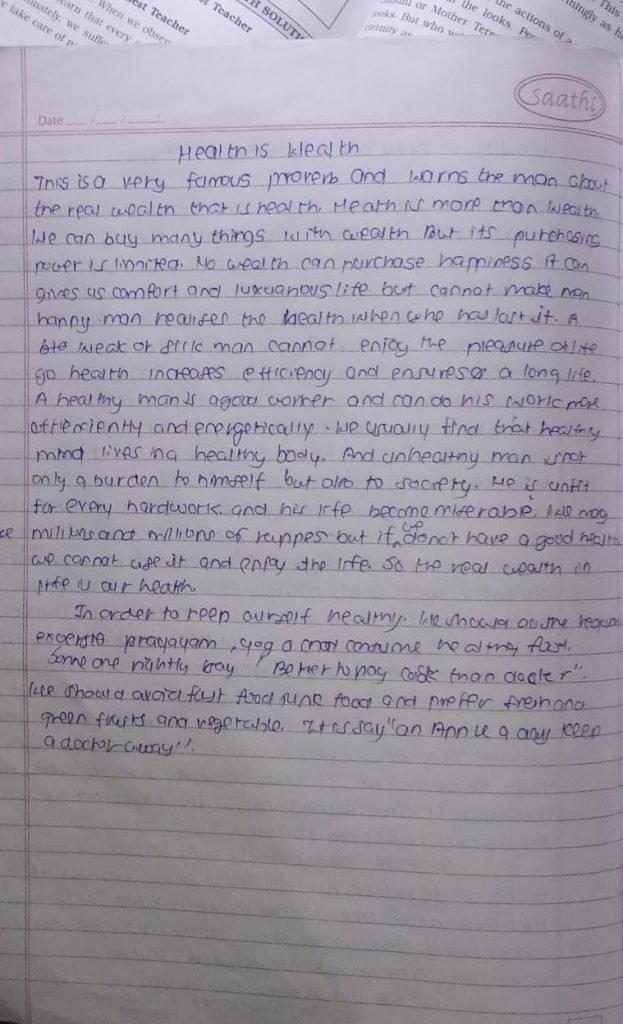 best Teacher
t Teacher
TH SOLUTI
When we obser
earn that every
unately, we suffe
e take care of
This
mingly as h
the actions of a
the looks. Per
or Mother Tere
looks. But who
eternity as
Saathi
Date __/__/__
Health is Wealth
This is a very famous proverb and warns the man about
the real wealth that is health. Heath is more than wealth
We can buy many things with wealth But its purchasing
power is limited. No wealth can purchase happiness it can
gives us comfort and luxuarious life but cannot make man
happy. man realises the health when who has lost it. A
weak or sick man cannot enjoy the pleasure of life
go health increases efficiency and ensures a long life.
A healthy man is a good worker and can do his work more
efficiently and energetically. We usually find that healthy
mind lives in a healthy body. And unhealthy man is not
only a burden to himself but also to society. He is unfit
for every hardwork and his life become miserable. We may
millions and millions of ruppes but if we donot have a good health
we cannot use it and enjoy the life. So the real wealth in
life is our health.
In order to keep ourself healthy. We should do the regular
excersie pranayam, yoga and consume healthy food.
Some one rightly say "Better to pay cook than docter".
We should avoid fast food junk food and preffer fresh and
green fruits and vegetable. It is say "an Apple a day keep
a doctor away".